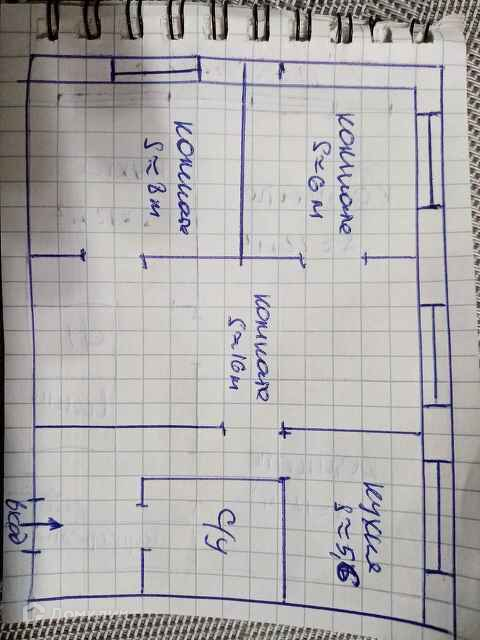 комнате
S≈8м
комнате
S≈6м
комнате
S≈16м
кухня
S≈5,6
с/у
вход
Домклик